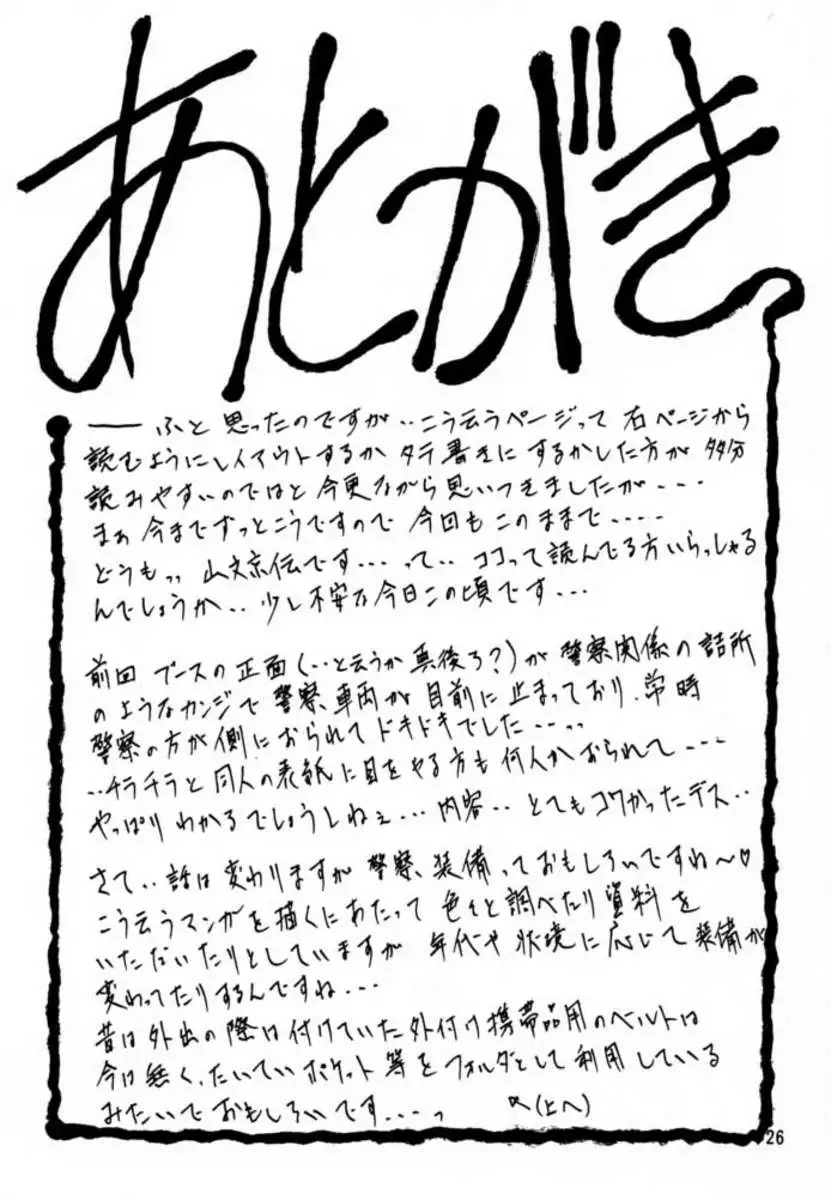 あとがき
── ふと思ったのですが‥こう云うページって右ページから
読むようにレイアウトするかタテ書きにするかした方が多分
読みやすいのではと今更ながら思いつきましたが----
まぁ今までずっとこうですので今回もこのままで----
どうもっっ山文京伝です---って‥ココって読んでる方いらっしゃる
んでしょうか‥少し不安な今日この頃です---
前回ブースの正面(‥と云うか真後ろ?)が警察関係の詰所
のようなカンジで警察車両が目前に止まっており、常時
警察の方が側におられてドキドキでした---っっ
‥チラチラと同人の表紙に目をやる方も何人かおられて---
やっぱりわかるでしょうしねぇ---内容‥とてもコワかったデス‥
さて‥話は変わりますが警察装備っておもしろいですね〜♡
こう云うマンガを描くにあたって色々と調べたり資料を
いただいたりとしていますが年代や状境に応じて装備が
変わってたりするんですね---
昔は外出の際は付けていた外付け携帯品用のベルトは
今は無く、たいていポケット等をフォルダとして利用している
みたいでおもしろいです----っ (上へ)
26